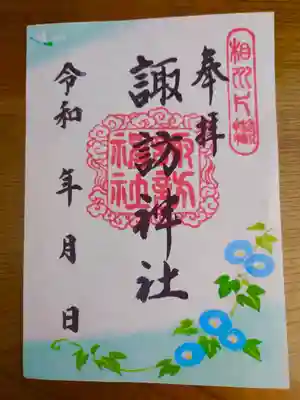 奉拝
相州片瀬
諏訪神社
諏訪神社
令和 年 月 日